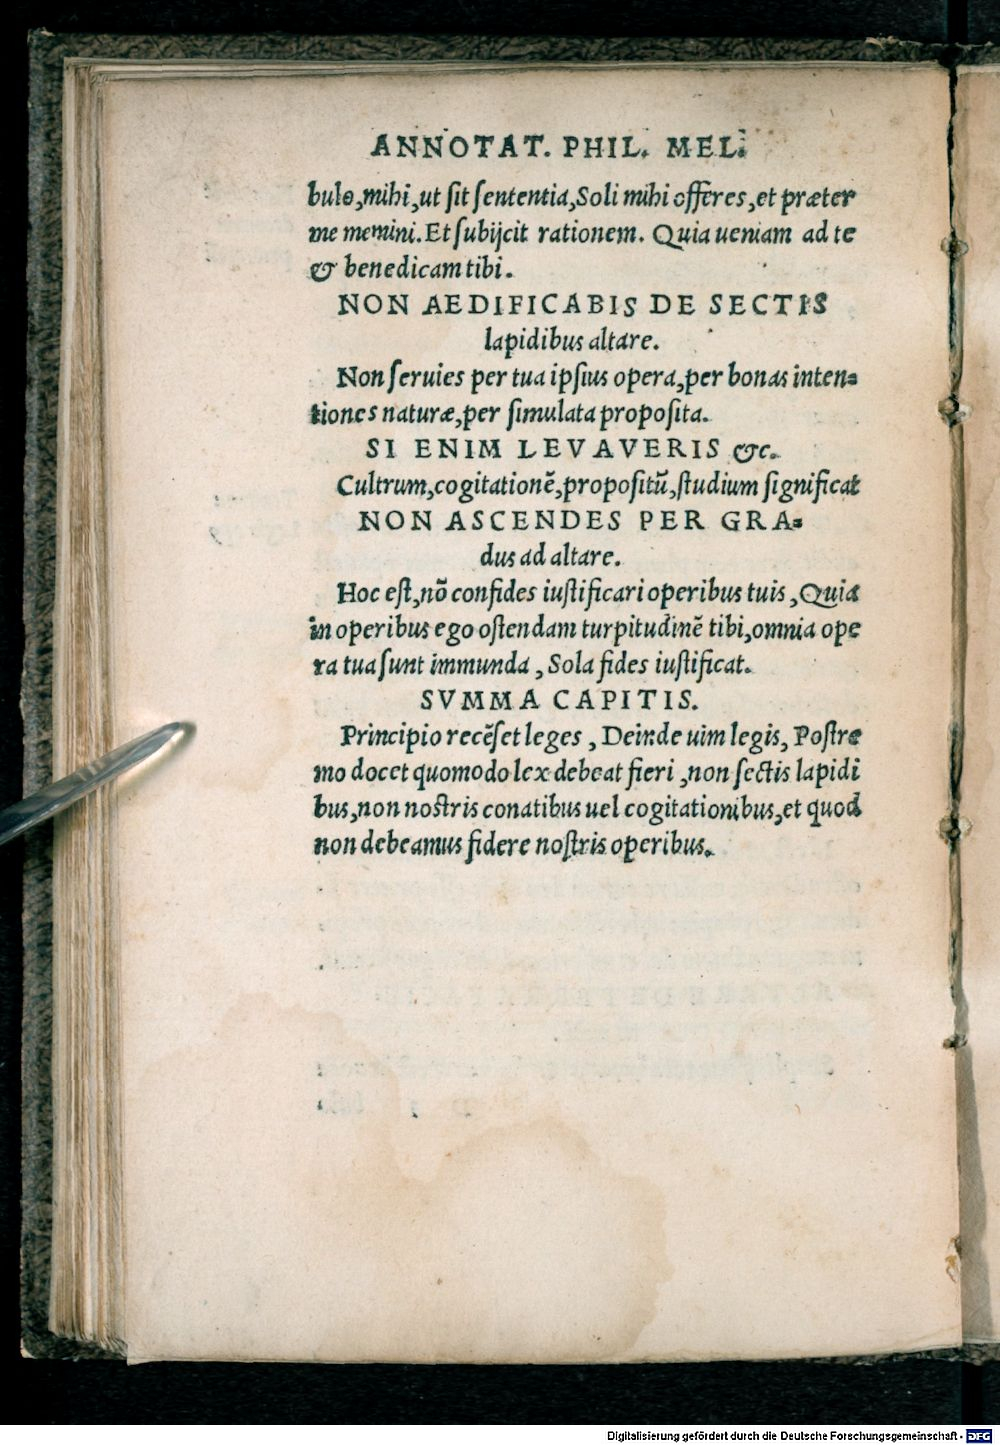 ANNOTAT. PHIL. MEL.
bulo,mihi,ut ſit ſententia,Soli mihi offeres,et præter
me memini.Et ſubijcit rationem. Quia ueniam ad te
& benedicam tibi.
NON AEDIFICABIS DE SECTIS
lapidibus altare.
Non ſeruies per tua ipſius opera,per bonas inten-
tiones naturæ,per ſimulata propoſita.
SI ENIM LEVAVERIS &c.
Cultrum,cogitationẽ,propoſitũ,ſtudium ſignificat
NON ASCENDES PER GRA-
dus ad altare.
Hoc eſt,nõ confides iuſtificari operibus tuis,Quia
in operibus ego oſtendam turpitudinẽ tibi,omnia ope
ra tua ſunt immunda, Sola fides iuſtificat.
SVMMA CAPITIS.
Principio recẽſet leges, Deinde uim legis, Poſtre
mo docet quomodo lex debeat fieri,non ſectis lapidi
bus,non noſtris conatibus uel cogitationibus,et quod
non debeamus fidere noſtris operibus.
Digitalisierung gefördert durch die Deutsche Forschungsgemeinschaft - DFG